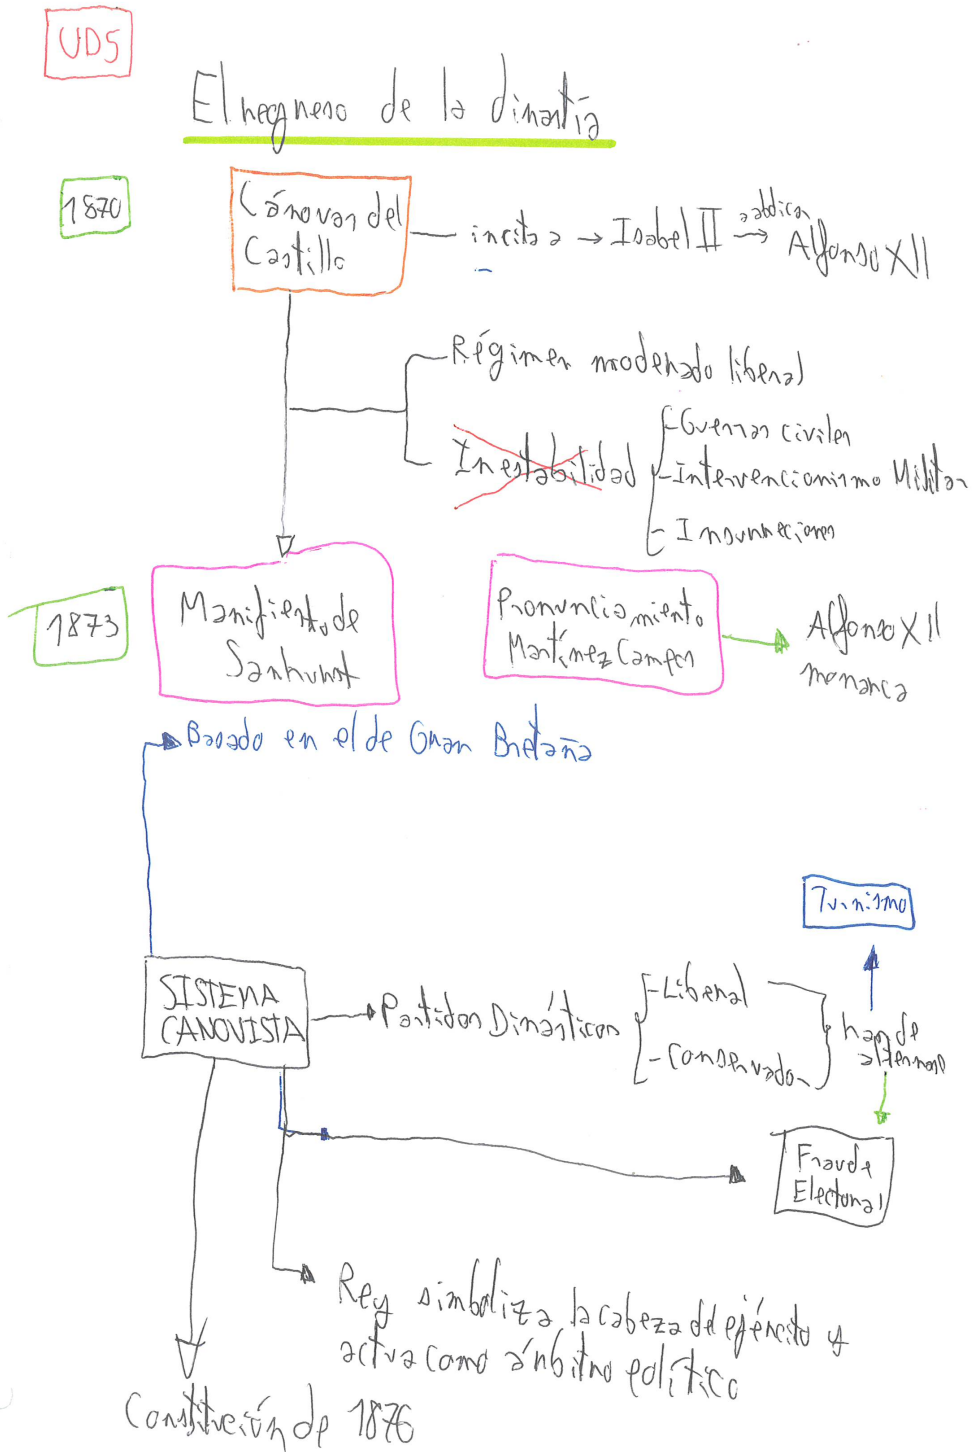 UD5
El regreso de la dinastía
1870
Cánovas del
Castillo
incita a → Isabel II → Alfonso XII
a abdicar
Régimen moderado liberal
Inestabilidad
-Guerras civiles
-Intervencionismo Militar
- Insurrecciones
1873
Manifiesto de
Sanhurst
Pronunciamiento
Martínez Campos
Alfonso XII
monarca
Basado en el de Gran Bretaña
Turnismo
SISTEMA
CANOVISTA
Partidos Dinásticos
-Liberal
-Conservador
han de
alternarse
Fraude
Electoral
Rey simboliza la cabeza del ejército y
actua como árbitro político
Constitución de 1876